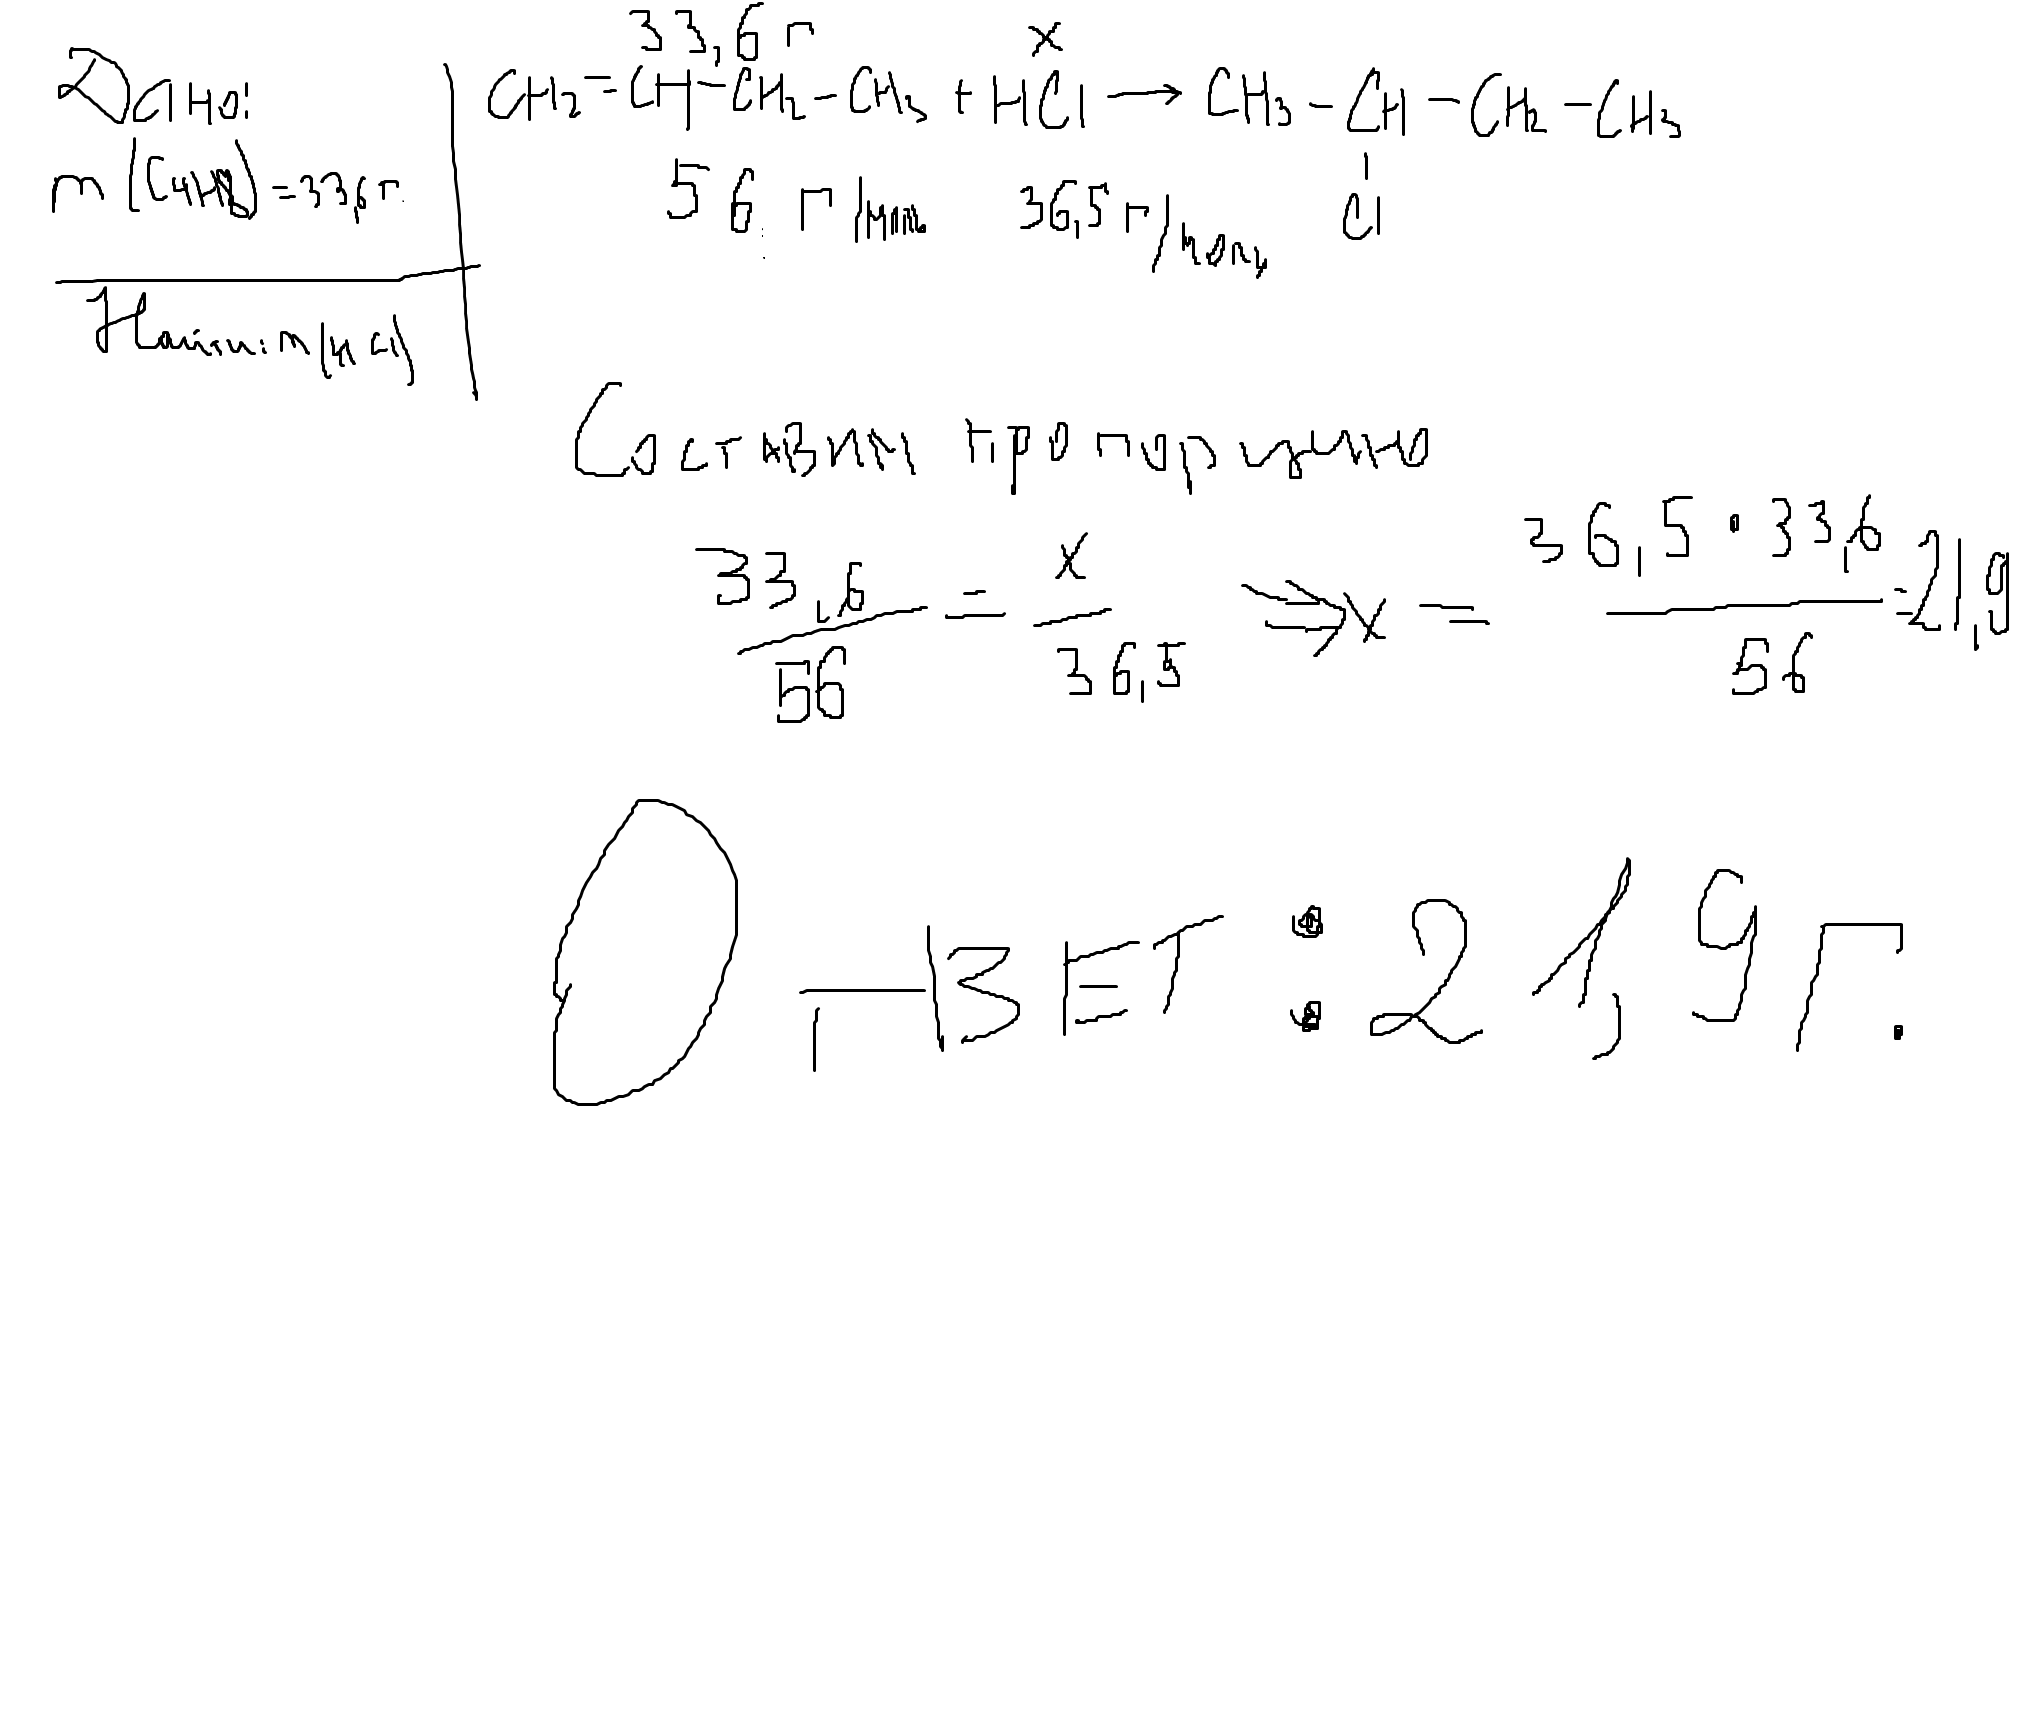 Дано:
m(C4H8)=33,6 г.
Найти: m(HCl)
33,6 г x
CH2=CH-CH2-CH3 + HCl → CH3-CH-CH2-CH3
56 г/моль 36,5 г/моль Cl
Составим пропорцию
33,6/56 = x/36,5 ⇒ x = 36,5 • 33,6/56 = 21,9
Ответ: 21,9 г.